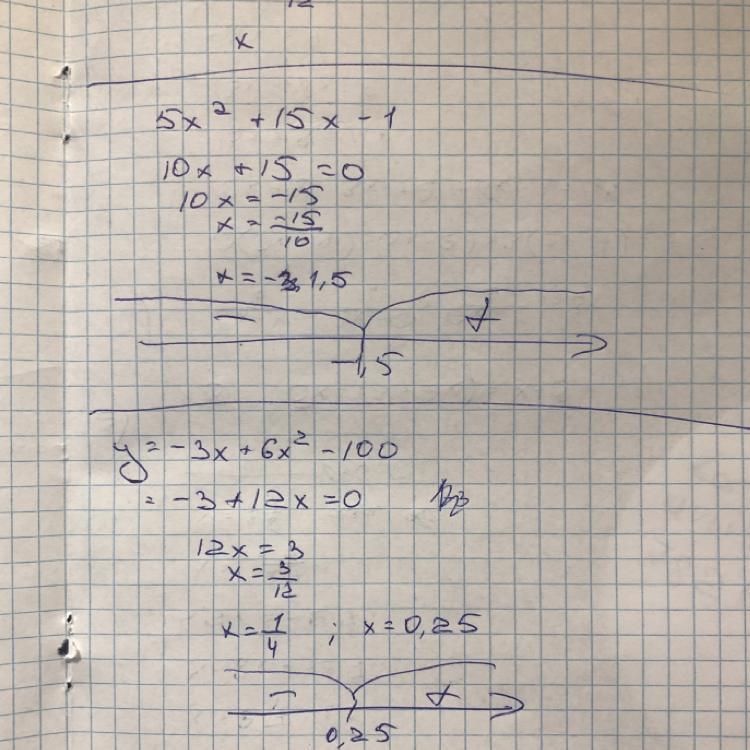 12
x
5x² + 15x - 1
10x + 15 = 0
10x = -15
x = -15/10
x = -1,5
- +
-1,5
y = -3x + 6x² - 100
= -3 + 12x = 0
12x = 3
x = 3/12
x = 1/4 ; x = 0,25
- +
0,25